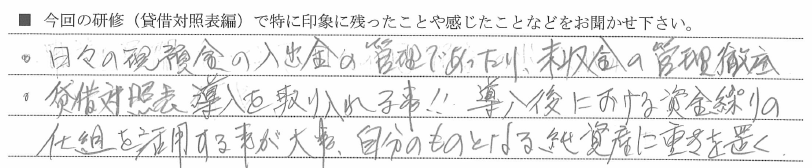 ■ 今回の研修（貸借対照表編）で特に印象に残ったことや感じたことなどをお聞かせ下さい。
・日々の現預金の入出金の管理であったり、未収金の管理徹底
・貸借対照表導入を取り入れる事!! 導入後における資金繰りの
仕組を活用する事が大事、自分のものとなる純資産に重きを置く